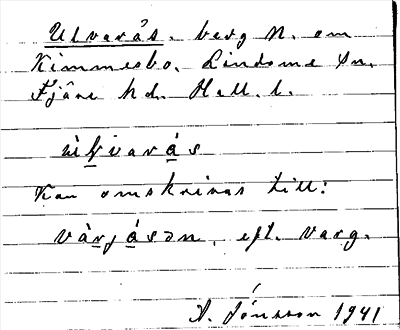 Ulvarås. berg N. om
Kimmesbo. Lindome Sn.
Fjäre hd. Hall. l.
ùlvarás
Kan omskrivas till:
várjásən, eft. varg.
A. Jónsson 1941